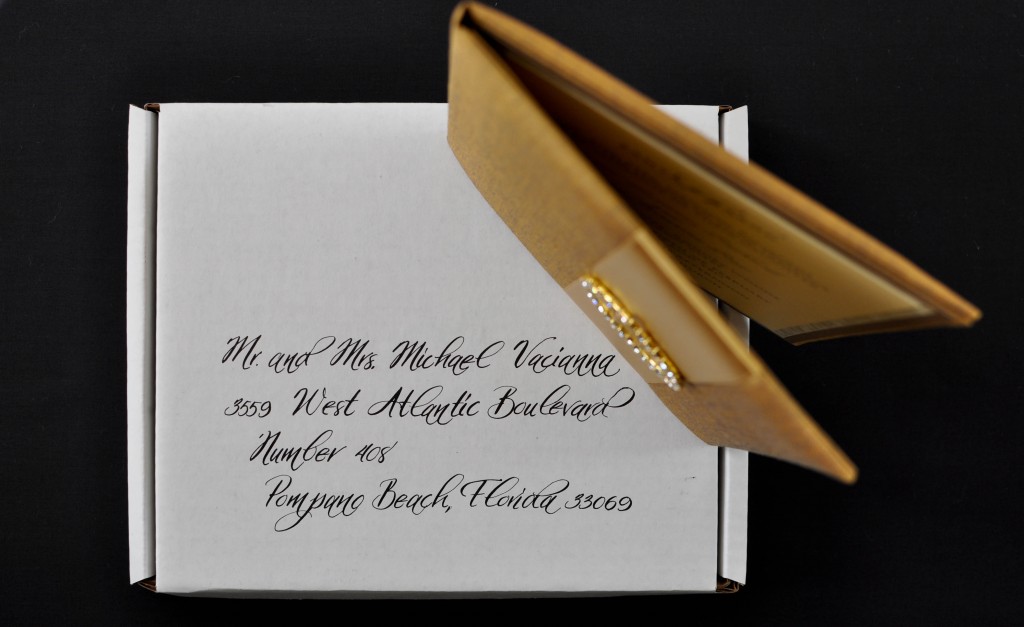 Mr. and Mrs. Michael Vacianna
3559 West Atlantic Boulevard
Number 408
Pompano Beach, Florida 33069